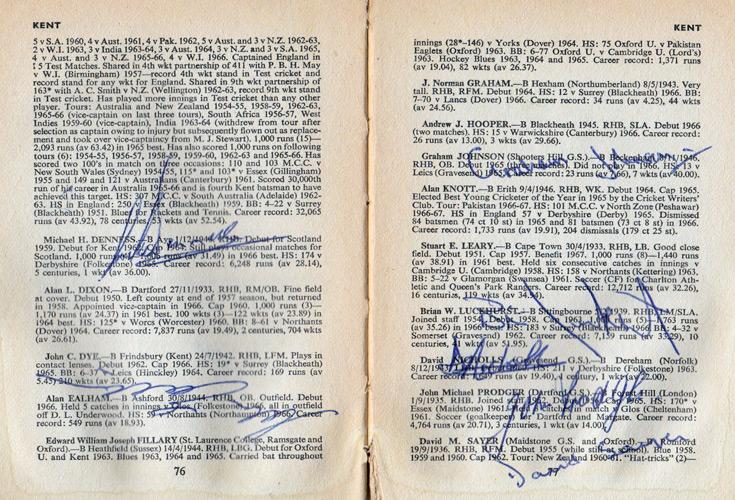 KENT
5 v S.A. 1960, 4 v Aust. 1961, 4 v Pak. 1962, 5 v Aust. and 3 v N.Z. 1962-63,
2 v W.I. 1963, 3 v India 1963-64, 3 v Aust. 1964, 3 v N.Z. and 3 v S.A. 1965,
4 v Aust. and 3 v N.Z. 1965-66, 4 v W.I. 1966. Captained England in
15 Test Matches. Shared in 4th wkt partnership of 411 with P. B. H. May
v W.I. (Birmingham) 1957—record 4th wkt stand in Test cricket and
record stand for any wkt for England. Shared in 9th wkt partnership of
163* with A. C. Smith v N.Z. (Wellington) 1962-63, record 9th wkt stand
in Test cricket. Has played more innings in Test cricket than any other
player. Tours: Australia and New Zealand 1954-55, 1958-59, 1962-63,
1965-66 (vice-captain on last three tours), South Africa 1956-57, West
Indies 1959-60 (vice-captain), India 1963-64 (withdrew from tour after
selection as captain owing to injury but subsequently flown out as replace-
ment and took over vice-captaincy from M. J. Stewart). 1,000 runs (15)—
2,093 runs (av 63.42) in 1965 best. Has also scored 1,000 runs on following
tours (6): 1954-55, 1956-57, 1958-59, 1959-60, 1962-63 and 1965-66. Has
scored two 100's in match on three occasions: 110 and 103 M.C.C. v
New South Wales (Sydney) 1954-55, 115* and 103* v Essex (Gillingham)
1955 and 149 and 121 v Australians (Canterbury) 1961. Scored 30,000th
run of his career in Australia 1965-66 and is fourth Kent batsman to have
achieved this target. HS: 307 M.C.C. v South Australia (Adelaide) 1962-
63. HS in England: 250 v Essex (Blackheath) 1959. BB: 4-22 v Surrey
(Blackheath) 1951. Blues for Rackets and Tennis. Career record: 32,065
runs (av 43.92), 78 centuries, 53 wkts (av 52.54).
Michael H. DENNESS.—B Ayr 1/12/1940. RHB. Debut for Scotland
1959. Debut for Kent 1962. Cap 1964. Still plays occasional matches for
Scotland. 1,000 runs runs (av 31.49) in 1966 best. HS: 174 v
Derbyshire (Folkestone) 1965. Career record: 6,248 runs (av 28.14),
5 centuries, 1 wkt (av 36.00).
Alan L. DIXON.—B Dartford 27/11/1933. RHB, RM/OB. Fine field
at cover. Debut 1950. Left county at end of 1957 season, but returned
in 1958. Appointed vice-captain in 1966. Cap 1960. 1,000 runs (3)—
1,170 runs (av 24.37) in 1961 best. 100 wkts (3)—122 wkts (av 23.89) in
1964 best. HS: 125* v Worcs (Worcester) 1960. BB: 8-61 v Northants
(Dover) 1964. Career record: 7,837 runs (av 19.49), 2 centuries, 704 wkts
(av 26.61).
John C. DYE.—B Frindsbury (Kent) 24/7/1942. RHB, LFM. Plays in
contact lenses. Debut 1962. Cap 1966. HS: 19* v Surrey (Blackheath)
1965. BB: 6-37 v Leics (Hinckley) 1964. Career record: 169 runs (av
5.45) 210 wkts (av 23.65).
Alan EALHAM.—B Ashford 30/8/1944. RHB, OB. Outfield. Debut
1966. Held 5 catches in innings v (Folkestone) 1966, all in outfield
off D. L. Underwood. HS: 59 v Northants (Northampton) 1966. Career
record: 549 runs (av 18.93).
Edward William Joseph FILLARY (St. Laurence College, Ramsgate and
Oxford).—B Heathfield (Sussex) 14/4/1944. RHB, LBG. Debut for Oxford
U. and Kent 1963. Blues 1963, 1964 and 1965. Carried bat throughout
76
KENT
innings (28*-146) v Yorks (Dover) 1964. HS: 75 Oxford U. v Pakistan
Eaglets (Oxford) 1963. BB: 6-77 Oxford U. v Cambridge U. (Lord's)
1963. Hockey Blues 1963, 1964 and 1965. Career record: 1,371 runs
(av 19.04), 82 wkts (av 26.37).
J. Norman GRAHAM.—B Hexham (Northumberland) 8/5/1943. Very
tall. RHB, RFM. Debut 1964. HS: 12 v Surrey (Blackheath) 1966. BB:
7-70 v Lancs (Dover) 1966. Career record: 34 runs (av 4.25), 44 wkts
(av 24.56).
Andrew J. HOOPER.—B Blackheath 1945. RHB, SLA. Debut 1966
(two matches). HS: 15 v Warwickshire (Canterbury) 1966. Career record:
26 runs (av 13.00), 3 wkts (av 29.66).
Graham JOHNSON (Shooters Hill G.S.).—B Beckenham 1946.
RHB, OB. Debut 1965 (three matches). Did not play in 1966. HS:
Leics (Gravesend) 1965. Career record: 23 runs (av 7.66), 7 wkts (av 40.00).
Graham Johnson
Alan KNOTT.—B Erith 9/4/1946. RHB, WK. Debut 1964. Cap 1965.
Elected Best Young Cricketer of the Year in 1965 by the Cricket Writers'
Club. Tour: Pakistan 1966-67. HS: 101 M.C.C. v North Zone (Peshawar)
1966-67. HS in England 57 v Derbyshire (Derby) 1965. Dismissed
84 batsmen (74 ct 10 st) in 1965 and 81 batsmen (73 ct 8 st) in 1966.
Career record: 1,733 runs (av 19.91), 204 dismissals (179 ct 25 st).
Stuart E. LEARY.—B Cape Town 30/4/1933. RHB, LB. Good close
field. Debut 1951. Cap 1957. Benefit 1967. 1,000 runs (8)—1,440 runs
(av 38.91) in 1961 best. Held six consecutive catches in innings v
Cambridge U. (Cambridge) 1958. HS: 158 v Northants (Kettering) 1963.
BB: 5-22 v Glamorgan (Swansea) 1961. Soccer (CF) for Charlton Ath-
letic and Queen's Park Rangers. Career record: 12,712 runs (av 32.26),
16 centuries, 119 wkts (av 34.94).
Brian W. LUCKHURST.—B Sittingbourne 1939. RHB, LM/SLA.
Joined staff 1954. Debut 1958. Cap 1963. 1,000 runs (5)—1,763 runs
(av 35.26) in 1966 best. HS: 183 v Surrey (Blackheath) 1963. BB: 4-32 v
Somerset (Gravesend) 1962. Career record: 7,159 runs (av 33.29), 10
centuries, 41 wkts (av 51.95).
David NICHOLLS (Gravesend G.S.).—B Dereham (Norfolk)
8/12/1943. HS: 211 v Derbyshire (Folkestone) 1963.
Career record: runs (av 19.40), 1 century, 1 wkt (av 22.00).
John Michael PRODGER (Dartford G.S.).—B Forest Hill (London)
1/9/1935. RHB. Joined Debut 1956. Cap 1965. HS: 170* v
Essex (Maidstone) 1961. catches in match v Glos (Cheltenham)
1961. Soccer (goalkeeper) for Dartford and Margate. Career record:
4,764 runs (av 20.71), 3 centuries, 1 wkt (av 14.00).
David M. SAYER (Maidstone G.S. and Oxford).—B Romford
19/9/1936. RHB, RFM. Debut 1955 (while still at school). Blue 1958.
1959 and 1960. Cap 1962. Tour: New Zealand 1960-61. "Hat-tricks" (2)—
David Sayer